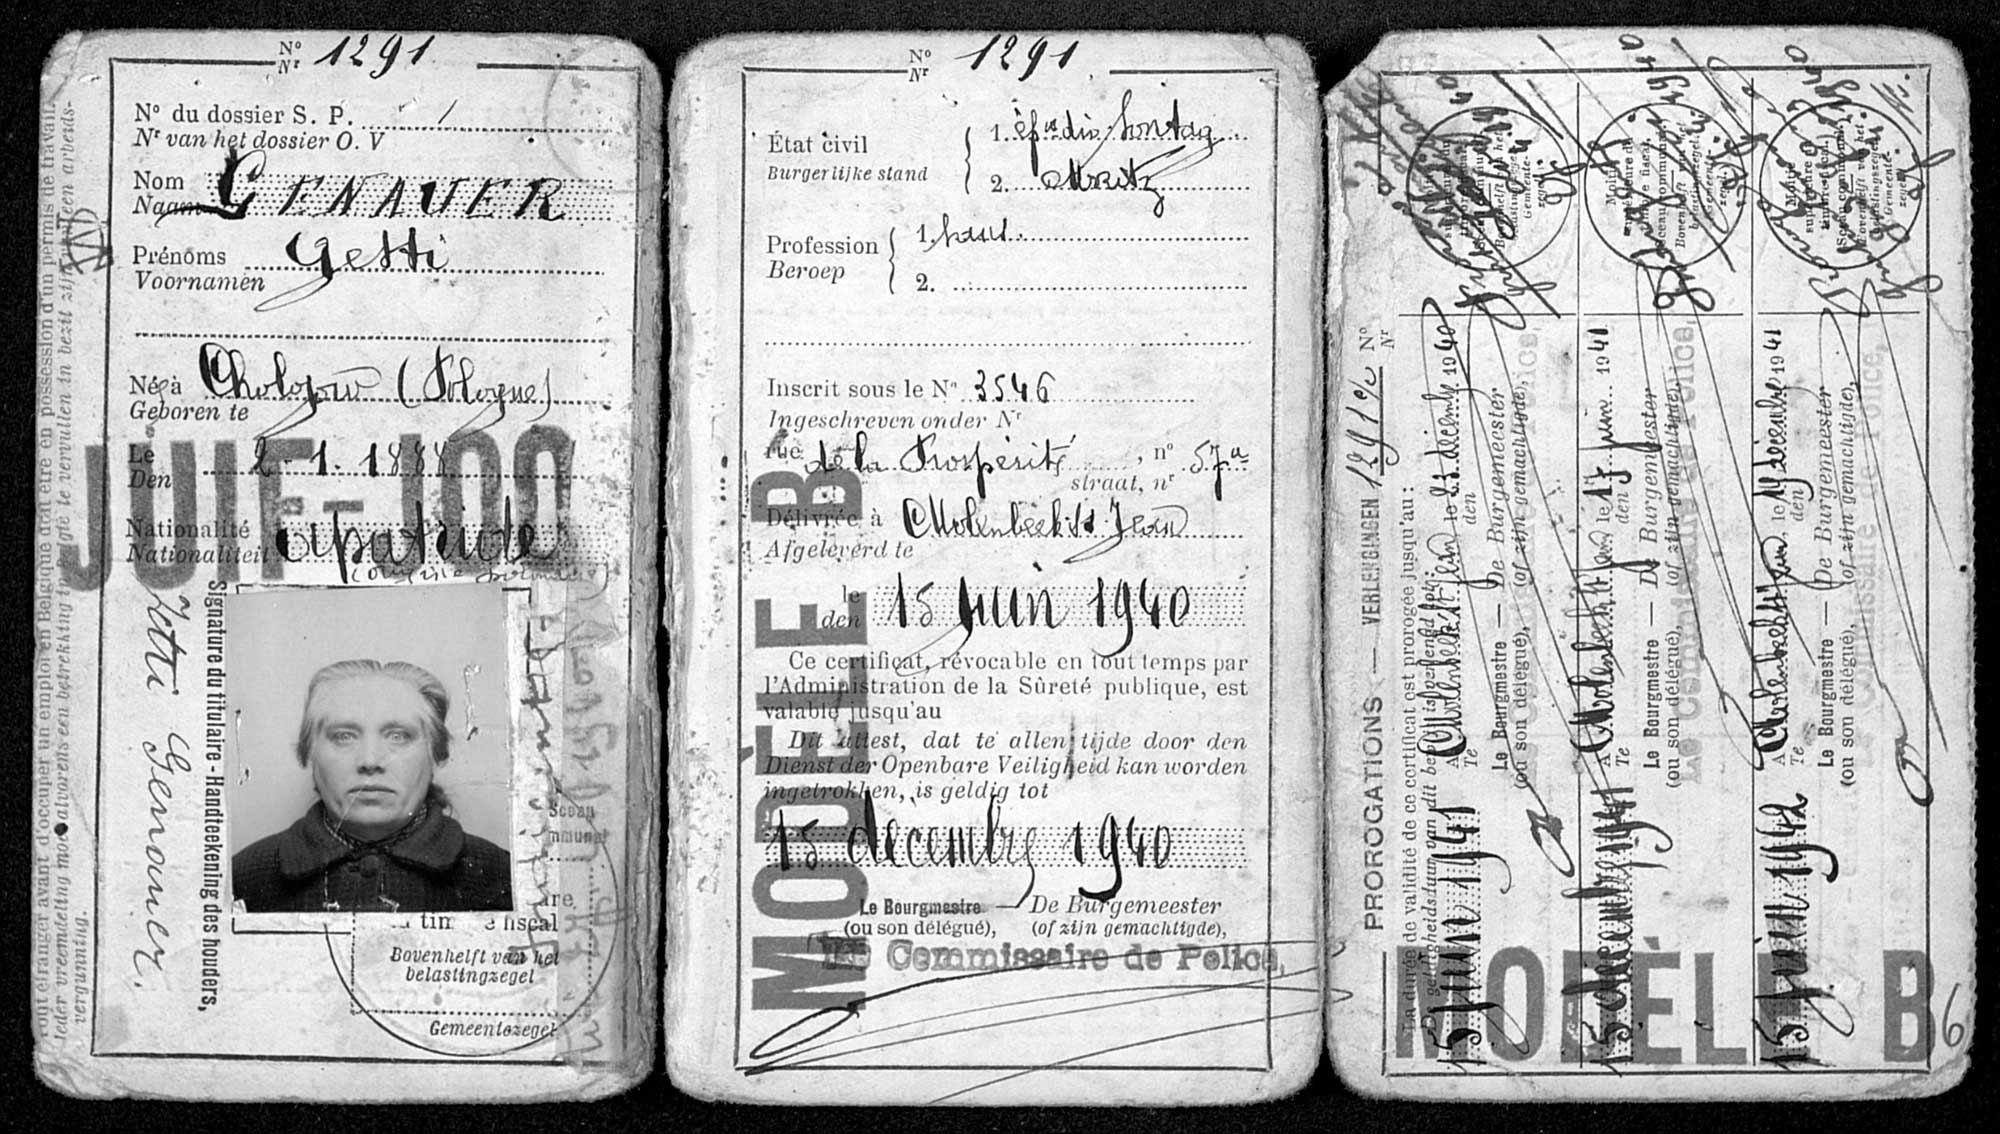 N° 1291
Nr
N° du dossier S. P.
Nr van het dossier O. V
Nom GENAUER
Naam
Prénoms Getti
Voornamen
Né à Cholojow (Pologne)
Geboren te
Le 2-1.1888
Den
JUIF-JOOD
Nationalité apatride
Nationaliteit
(origine polonaise)
Tout étranger avant d'occuper un emploi en Belgique doit être en possession d'un permis de travail.
Ieder vreemdeling moet alvorens een betrekking in België te vervullen in bezit zijn van een arbeidsvergunning.
Jetti Genauer.
Signature du titulaire - Handteekening des houders,
Sceau
timbre fiscal
Bovenhelft van het
belastingzegel
Gemeentezegel
N° 1291
Nr
État civil
Burgerlijke stand
1. épse div. Sontag
2. Moritz
Profession
Beroep
1. sans.
2.
Inscrit sous le N° 3546
Ingeschreven onder Nr
rue de la Prospérité, n° 57a
straat, nr
Délivrée à Molenbeek St Jean
Afgeleverd te
le 15 juin 1940
den
Ce certificat, révocable en tout temps par
l'Administration de la Sûreté publique, est
valable jusqu'au
Dit attest, dat te allen tijde door den
Dienst der Openbare Veiligheid kan worden
ingetrokken, is geldig tot
15 décembre 1940
Le Bourgmestre — De Burgemeester
(ou son délégué), (of zijn gemachtigde),
Le Commissaire de Police,
MODÈLE B
PROROGATIONS — VERLENGINGEN 1291 N°
Nr
La durée de validité de ce certificat est prorogée jusqu'au :
De geldigheidsduur van dit bewijs is verlengd tot :
15 juin 1941 A Molenbeek St Jean le 23 décembre 1940
Te den
Le Bourgmestre — De Burgemeester
(ou son délégué), (of zijn gemachtigde),
Le Commissaire de Police,
15 décembre 1941 A Molenbeek St Jean le 17 juin 1941
Te den
Le Bourgmestre — De Burgemeester
(ou son délégué), (of zijn gemachtigde),
Le Commissaire de Police,
15 juin 1942 A Molenbeek St Jean le 17 décembre 1941
Te den
Le Bourgmestre — De Burgemeester
(ou son délégué), (of zijn gemachtigde),
Le Commissaire de Police,
MODÈLE B
6